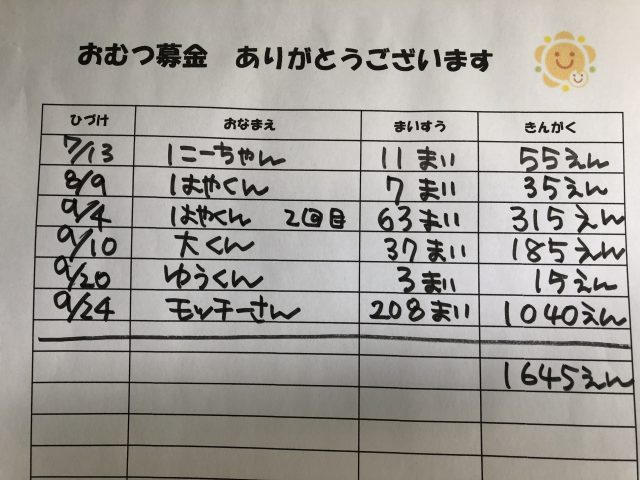 おむつ募金 ありがとうございます
ひづけ おなまえ まいすう きんがく
7/13 にーちゃん 11まい 55えん
8/9 はやくん 7まい 35えん
9/4 はやくん 2回目 63まい 315えん
9/10 大くん 37まい 185えん
9/20 ゆうくん 3まい 15えん
9/24 モッチーさん 208まい 1040えん
1645えん